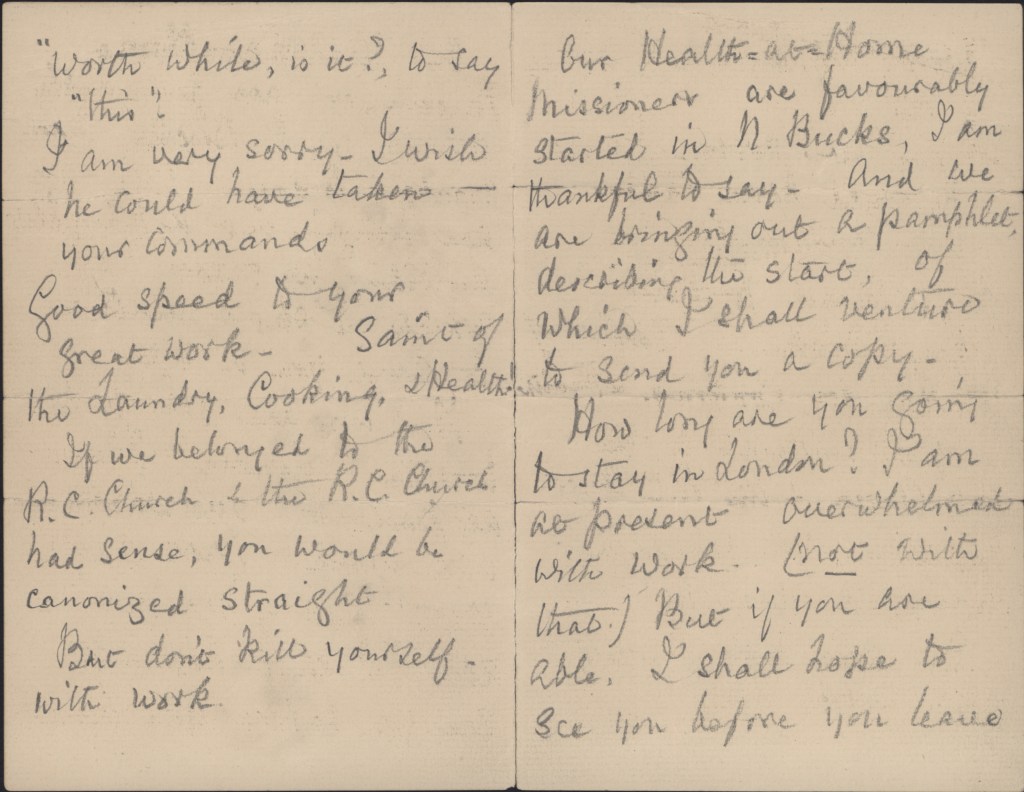 "Worth while, is it?, to say
"this"!
I am very sorry - I wish
he could have taken -
your commands
Good speed to your
great work - Saint of
the Laundry, Cooking, & Health!
If we belonged to the
R.C. Church & the R.C. Church
had sense, you would be
canonized straight
But don't kill yourself -
with work
Our Health=at=Home
Missioners are favourably
started in N. Bucks, I am
thankful to say - And we
are bringing out a pamphlet,
describing the start, of
which I shall venture
to send you a copy -
How long are you going
to stay in London? I am
at present overwhelmed
with work. (not with
that.) But if you are
able, I shall hope to
see you before you leave